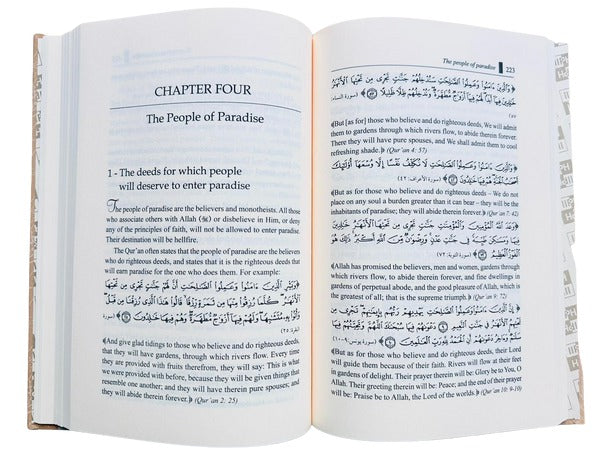 CHAPTER FOUR
The People of Paradise
1 - The deeds for which people
will deserve to enter paradise
The people of paradise are the believers and monotheists. All
those who associate others with Allah (ﷻ) or disbelieve in Him, or deny
any of the principles of faith, will not be allowed to enter paradise.
Their destination will be hellfire.
The Qur'an often states that the people of paradise are the believers
who do righteous deeds, and states that it is the righteous deeds that
will earn paradise for the one who does them. For example:
﴿وَبَشِّرِ الَّذِينَ ءَامَنُوا وَعَمِلُوا الصَّٰلِحَٰتِ أَنَّ لَهُمْ جَنَّٰتٍ تَجْرِى مِن تَحْتِهَا
الْأَنْهَٰرُ كُلَّمَا رُزِقُوا مِنْهَا مِن ثَمَرَةٍ رِّزْقًا قَالُوا هَٰذَا الَّذِى رُزِقْنَا مِن قَبْلُ
وَأُتُوا بِهِ مُتَشَٰبِهًا وَلَهُمْ فِيهَا أَزْوَٰجٌ مُّطَهَّرَةٌ وَهُمْ فِيهَا خَٰلِدُونَ﴾ (سورة
البقرة: ٢٥)
﴿And give glad tidings to those who believe and do righteous deeds,
that they will have gardens, through which rivers flow. Every time
they are provided with fruits therefrom, they will say: This is what
we were provided with before, because they will be given things that
resemble one another; and they will have therein pure spouses; and
they will abide therein forever.﴾ (Qur'an 2: 25)
The people of paradise 223
﴿وَالَّذِينَ ءَامَنُوا وَعَمِلُوا الصَّٰلِحَٰتِ سَنُدْخِلُهُمْ جَنَّٰتٍ تَجْرِى مِن تَحْتِهَا الْأَنْهَٰرُ
خَٰلِدِينَ فِيهَا أَبَدًا لَّهُمْ فِيهَا أَزْوَٰجٌ مُّطَهَّرَةٌ وَنُدْخِلُهُمْ ظِلًّا ظَلِيلًا﴾ (سورة النساء:
٥٧)
﴿But [as for] those who believe and do righteous deeds, We will admit
them to gardens through which rivers flow, to abide therein forever.
There they will have pure spouses, and We shall admit them to cool
refreshing shade.﴾ (Qur'an 4: 57)
﴿وَالَّذِينَ ءَامَنُوا وَعَمِلُوا الصَّٰلِحَٰتِ لَا نُكَلِّفُ نَفْسًا إِلَّا وُسْعَهَا أُولَٰئِكَ
أَصْحَٰبُ الْجَنَّةِ هُمْ فِيهَا خَٰلِدُونَ﴾ (سورة الأعراف: ٤٢)
﴿But as for those who believe and do righteous deeds – We do not
place on any soul a burden greater than it can bear – they will be the
inhabitants of paradise; they will abide therein forever.﴾ (Qur'an 7: 42)
﴿وَعَدَ اللَّهُ الْمُؤْمِنِينَ وَالْمُؤْمِنَٰتِ جَنَّٰتٍ تَجْرِى مِن تَحْتِهَا الْأَنْهَٰرُ خَٰلِدِينَ
فِيهَا وَمَسَٰكِنَ طَيِّبَةً فِى جَنَّٰتِ عَدْنٍ وَرِضْوَٰنٌ مِّنَ اللَّهِ أَكْبَرُ ذَٰلِكَ هُوَ
الْفَوْزُ الْعَظِيمُ﴾ (سورة التوبة: ٧٢)
﴿Allah has promised the believers, men and women, gardens through
which rivers flow, to abide therein forever, and fine dwellings in
gardens of perpetual abode, and the good pleasure of Allah, which is
the greatest of all; that is the supreme triumph.﴾ (Qur'an 9: 72)
﴿إِنَّ الَّذِينَ ءَامَنُوا وَعَمِلُوا الصَّٰلِحَٰتِ يَهْدِيهِمْ رَبُّهُم بِإِيمَٰنِهِمْ تَجْرِى مِن تَحْتِهِمُ
الْأَنْهَٰرُ فِى جَنَّٰتِ النَّعِيمِ دَعْوَىٰهُمْ فِيهَا سُبْحَٰنَكَ اللَّهُمَّ وَتَحِيَّتُهُمْ فِيهَا
سَلَٰمٌ وَءَاخِرُ دَعْوَىٰهُمْ أَنِ الْحَمْدُ لِلَّهِ رَبِّ الْعَٰلَمِينَ﴾ (سورة يونس: ٩-١٠)
﴿But as for those who believe and do righteous deeds, their Lord
will guide them because of their faith. Rivers will flow at their feet
in gardens of delight. Their prayer therein will be: Glory be to You, O
Allah. Their greeting therein will be: Peace; and the end of their prayer
will be: Praise be to Allah, the Lord of the worlds.﴾ (Qur'an 10: 9-10)